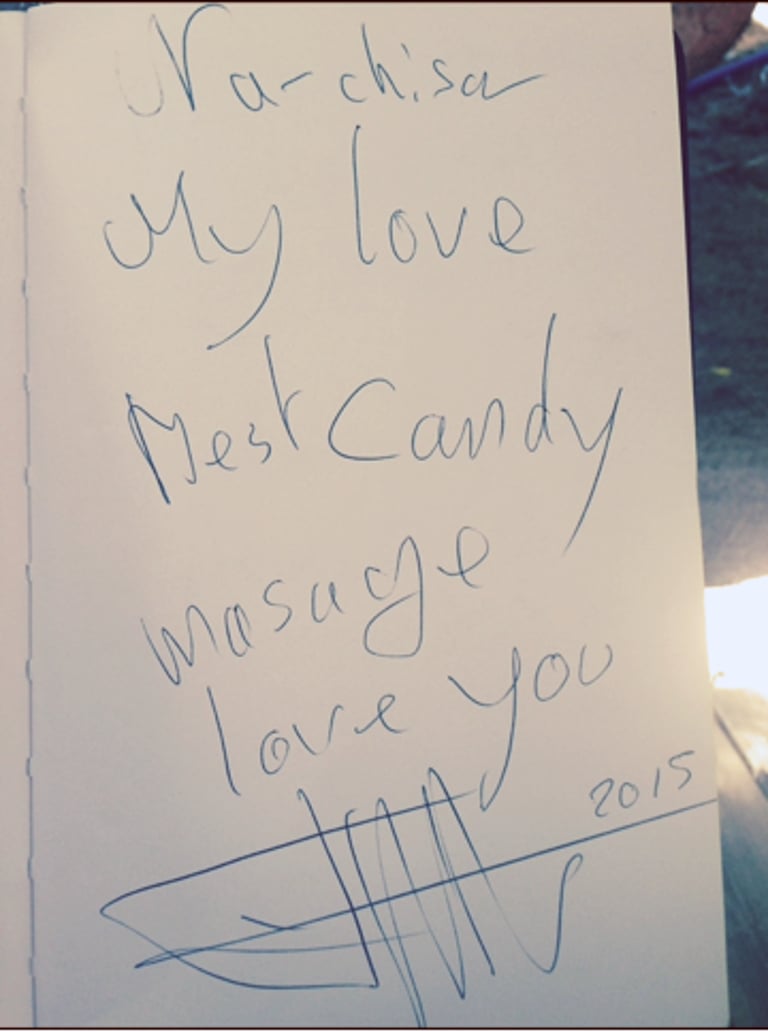 Na-chisa
My love
Mest Candy
masage
love you
2015